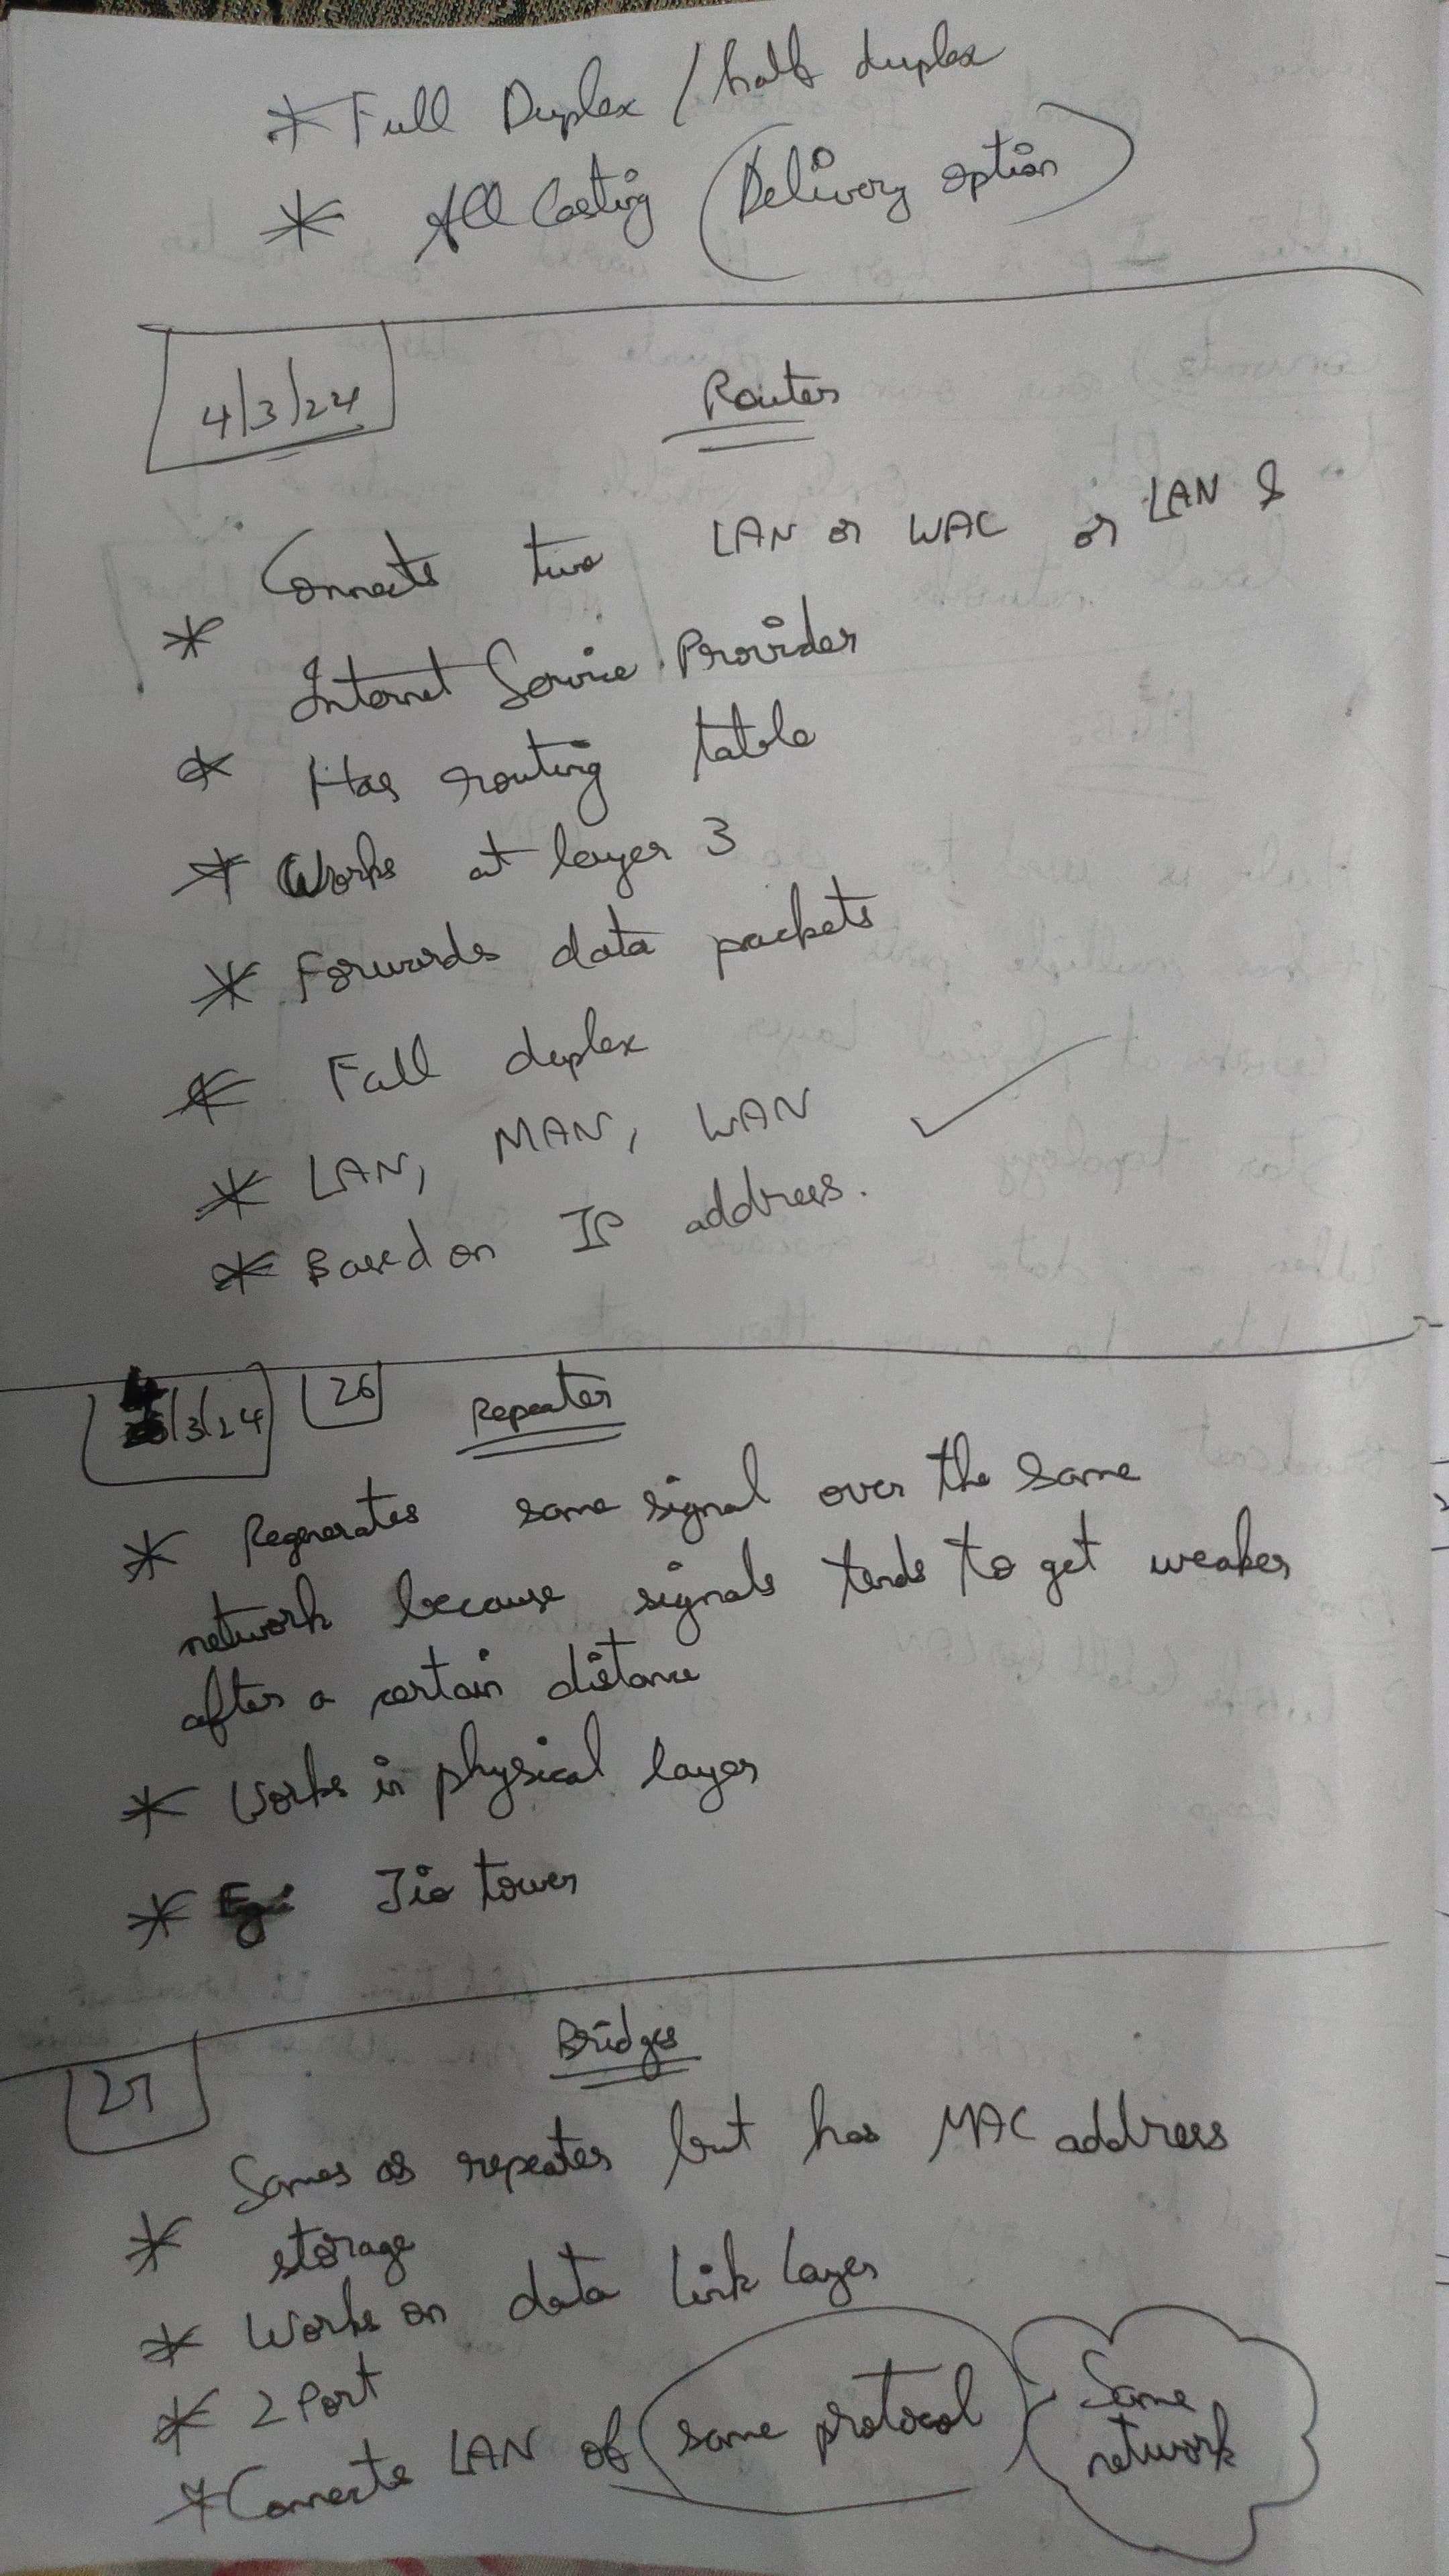 * Full Duplex / half duplex
* All Casting (Delivery option)
4/3/24
Router
* Connects two LAN or WAC or LAN &
Internet Service Provider
* Has routing table
* Works at layer 3
* Forwards data packets
* Full duplex
* LAN, MAN, WAN
* Based on IP address.
4/3/24 26 Repeater
* Regenerates same signal over the same
network because signals tends to get weaker
after a certain distance
* Works in physical layer
* Eg: Jio tower
27 Bridges
* Sames as repeater but has MAC address
storage
* Works on data link layer
* 2 Port
* Connects LAN of (same protocol) Same
network